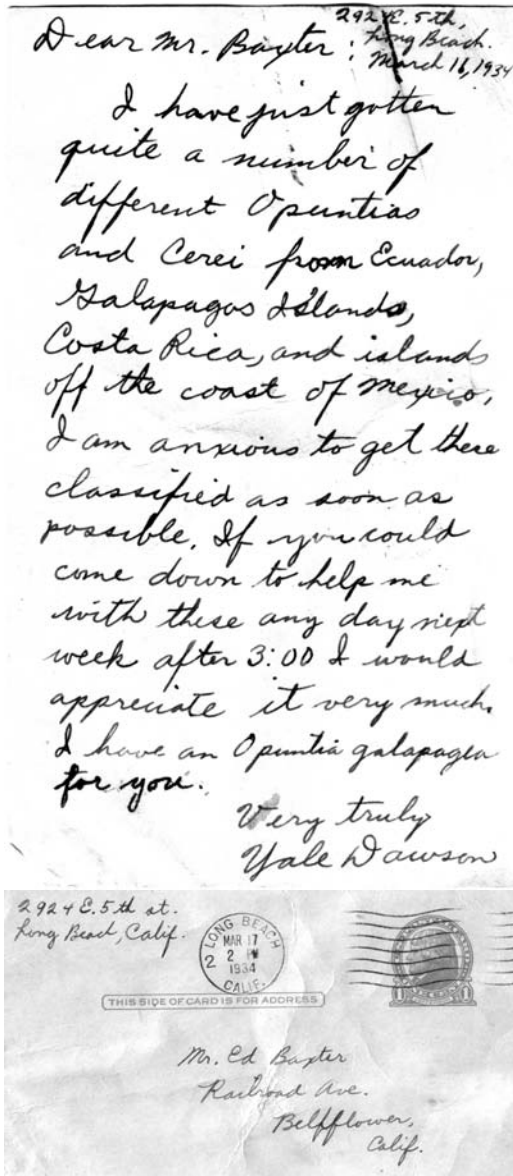 292 E. 5th,
Long Beach.
March 16, 1934
Dear Mr. Baxter:
I have just gotten
quite a number of
different Opuntias
and Cerei from Ecuador,
Galapagos Islands,
Costa Rica, and islands
off the coast of Mexico.
I am anxious to get these
classified as soon as
possible. If you could
come down to help me
with these any day next
week after 3:00 I would
appreciate it very much.
I have an Opuntia galapagea
for you.
Very truly
Yale Dawson
2924 E. 5th st.
Long Beach, Calif.
LONG BEACH
MAR 17
2 2 PM
1934
CALIF.
THIS SIDE OF CARD IS FOR ADDRESS
1 1
Mr. Ed Baxter
Railroad Ave.
Belfflower,
Calif.